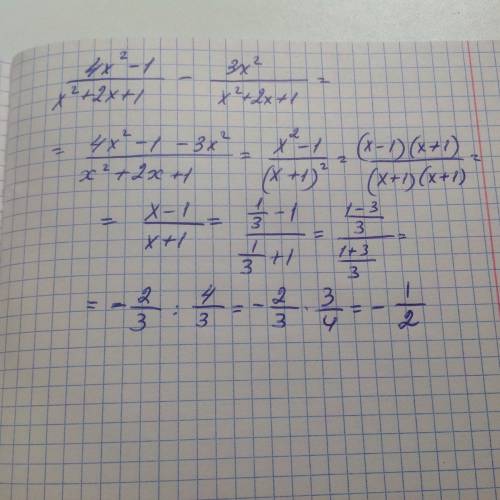 (4x²-1)/(x²+2x+1) - 3x²/(x²+2x+1) =
= (4x²-1-3x²)/(x²+2x+1) = (x²-1)/(x+1)² = (x-1)(x+1)/(x+1)(x+1) =
= (x-1)/(x+1) = (1/3 - 1)/(1/3 + 1) = ((1-3)/3)/((1+3)/3) =
= - 2/3 : 4/3 = - 2/3 · 3/4 = - 1/2